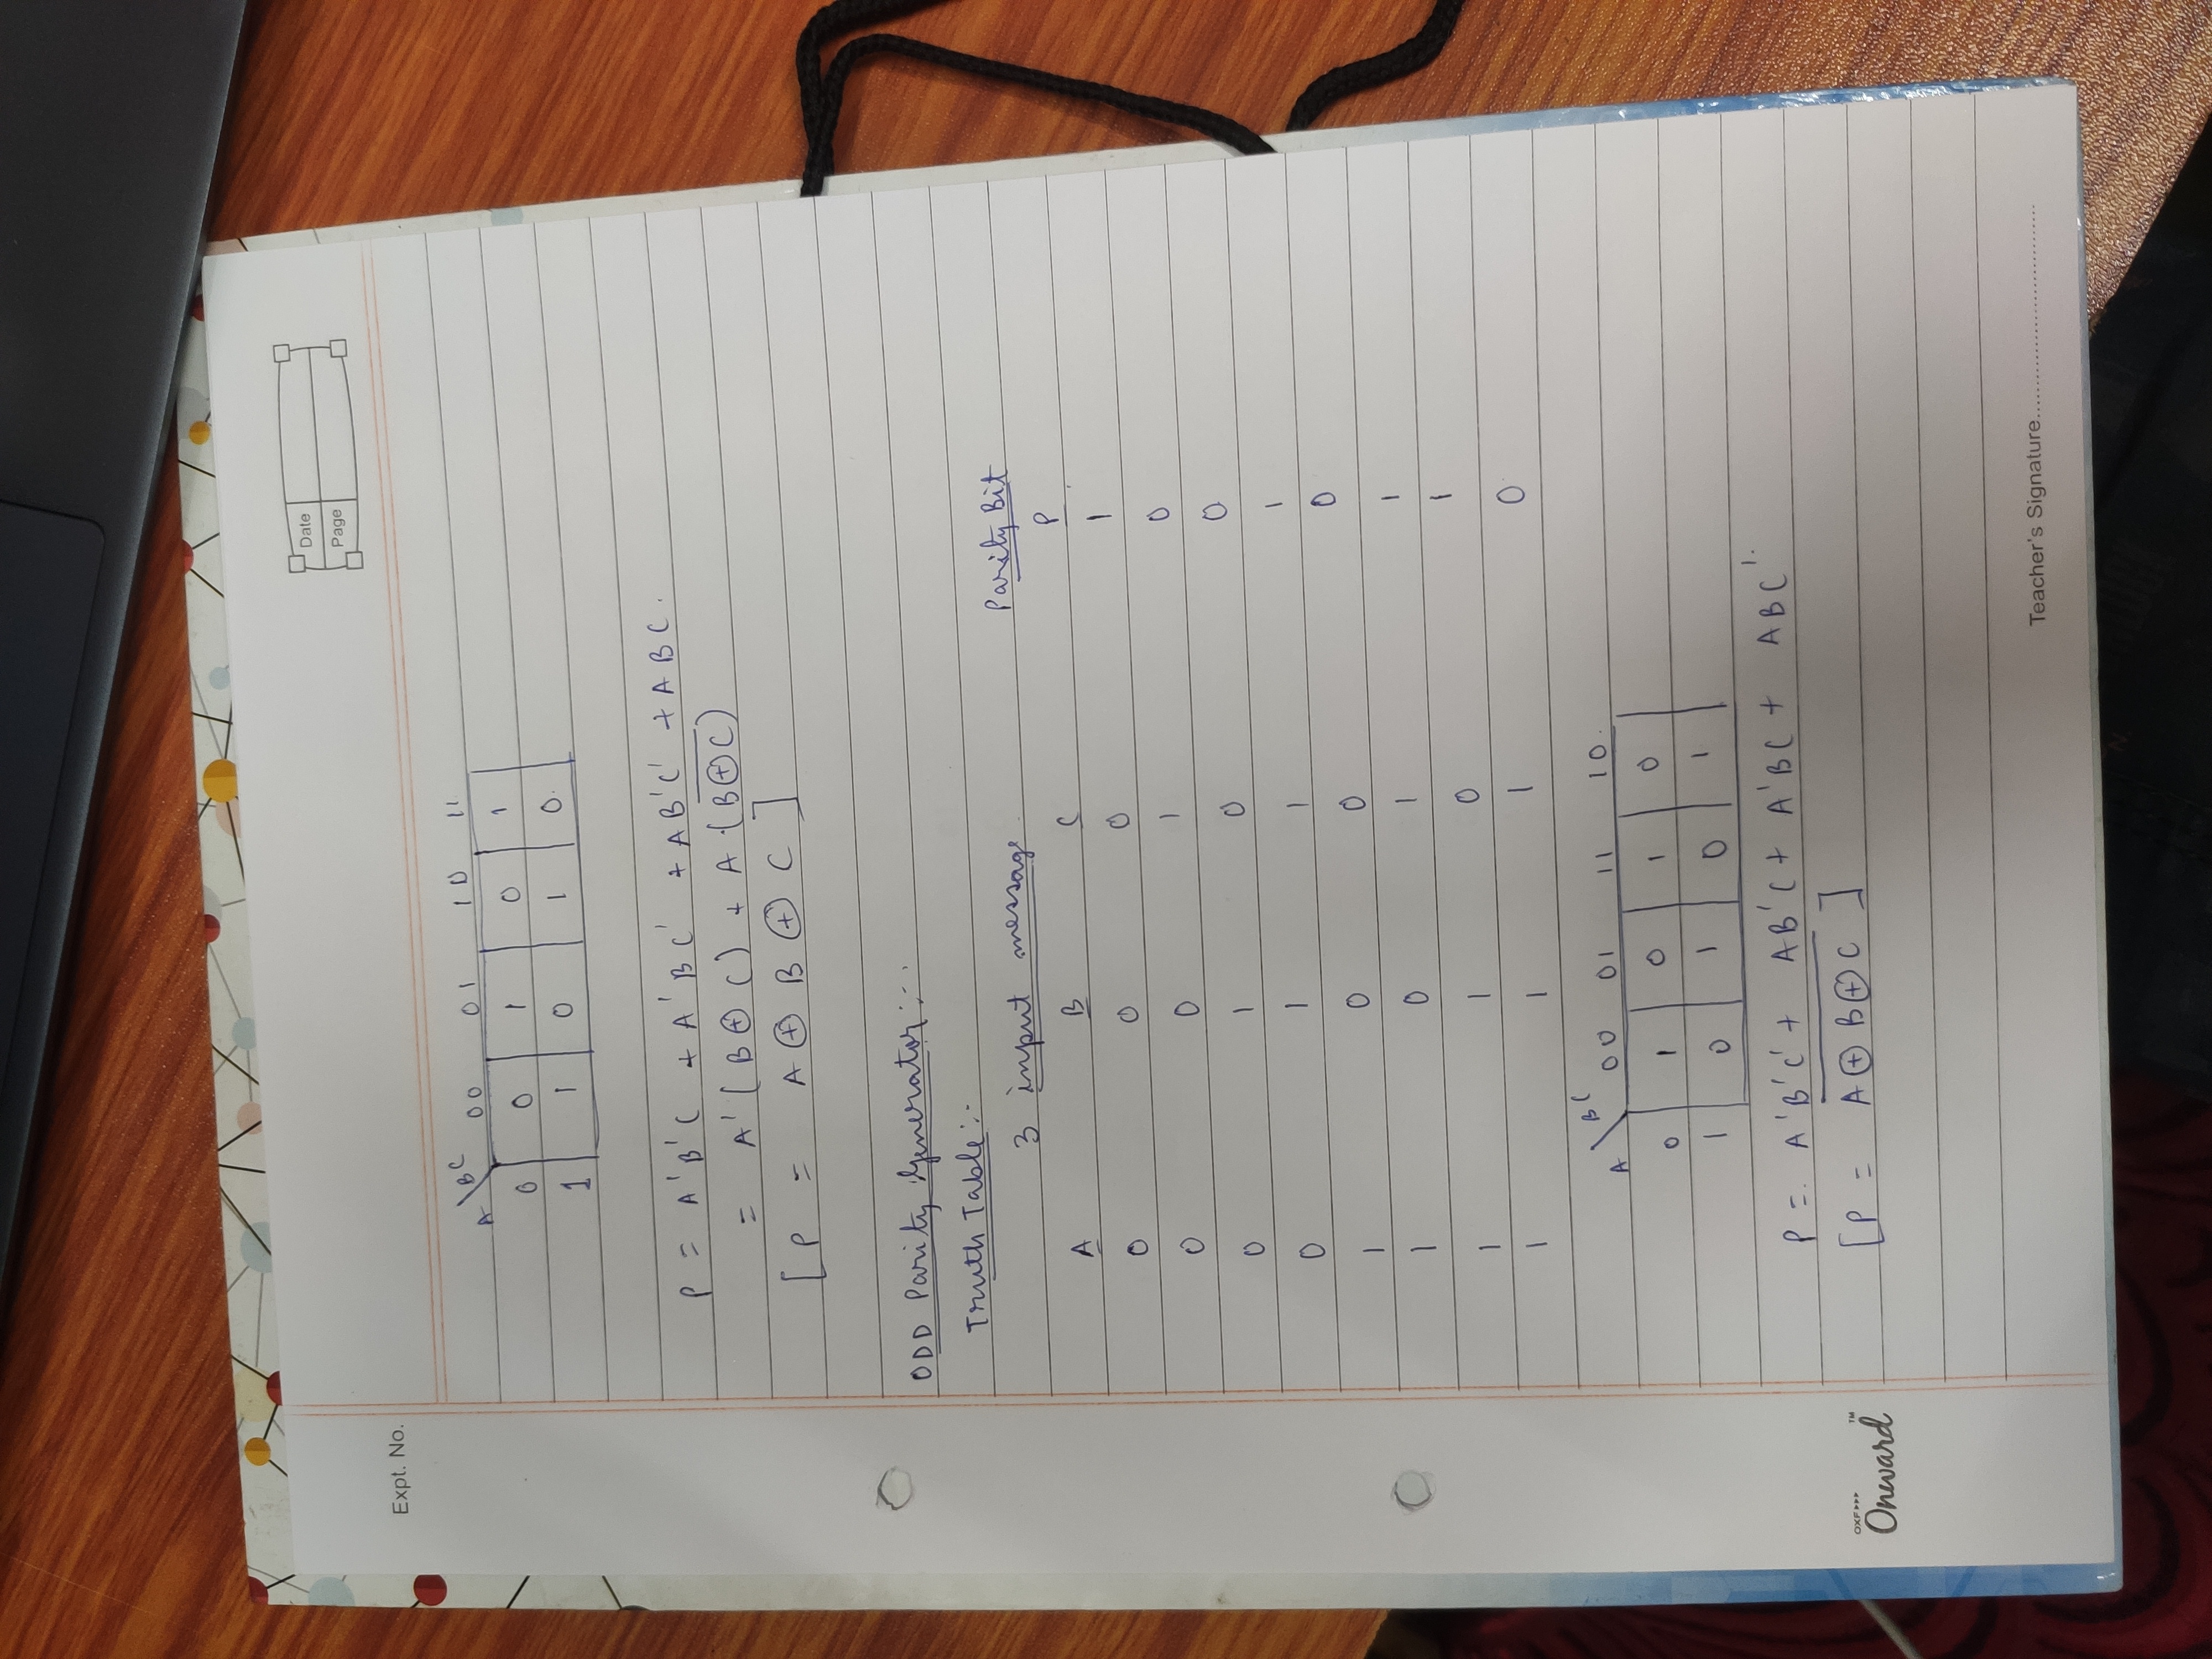 Date
Page
Expt. No.
A \ BC 00 01 10 11
0 0 1 0 1
1 1 0 1 0.
P = A'B'C + A'BC' + AB'C' + ABC.
= A'(B⊕C) + A (B̅⊕̅C̅)
[P = A ⊕ B ⊕ C]
ODD Parity Generator :-
Truth Table :-
3 input message Parity Bit
A B C P
0 0 0 1
0 0 1 0
0 1 0 0
0 1 1 1
1 0 0 0
1 0 1 1
1 1 0 1
1 1 1 0
A \ BC 00 01 11 10.
0 1 0 1 0
1 0 1 0 1
P =. A'B'C' + AB'C + A'BC + ABC'.
[P = A̅⊕̅B̅⊕̅C̅]
OXF▸▸▸
Onward™
Teacher's Signature....................................